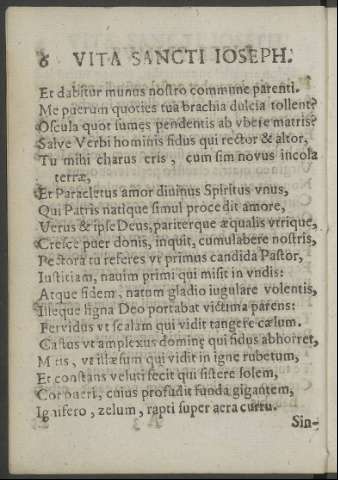 6 VITA SANCTI IOSEPH.
Et dabitur munus nostro commune parenti.
Me puerum quoties tua brachia dulcia tollent?
Oscula quot sumes pendentis ab vbere matris?
Salve Verbi hominis fidus qui rector & altor,
Tu mihi charus eris, cum sim novus incola
terræ,
Et Paracletus amor divinus Spiritus vnus,
Qui Patris natique simul procedit amore,
Verus & ipse Deus, pariterque æqualis vtrique,
Cresce puer donis, inquit, cumulabere nostris,
Pectora tu referes vt primus candida Pastor,
Iustitiam, navim primi qui misit in vndis:
Atque fidem, natum gladio iugulare volentis,
Illeque ligna Deo portabat victima parens:
Fervidus vt scalam qui vidit tangere cælum.
Castus vt amplexus dominę qui fidus abhorret,
Mitis, vt illæsum qui vidit in igne rubetum,
Et constans veluti fecit qui sistere solem,
Corporei, cuius profudit funda gigantem,
Ignifero, zelum, rapti super aera curru.
Sin-